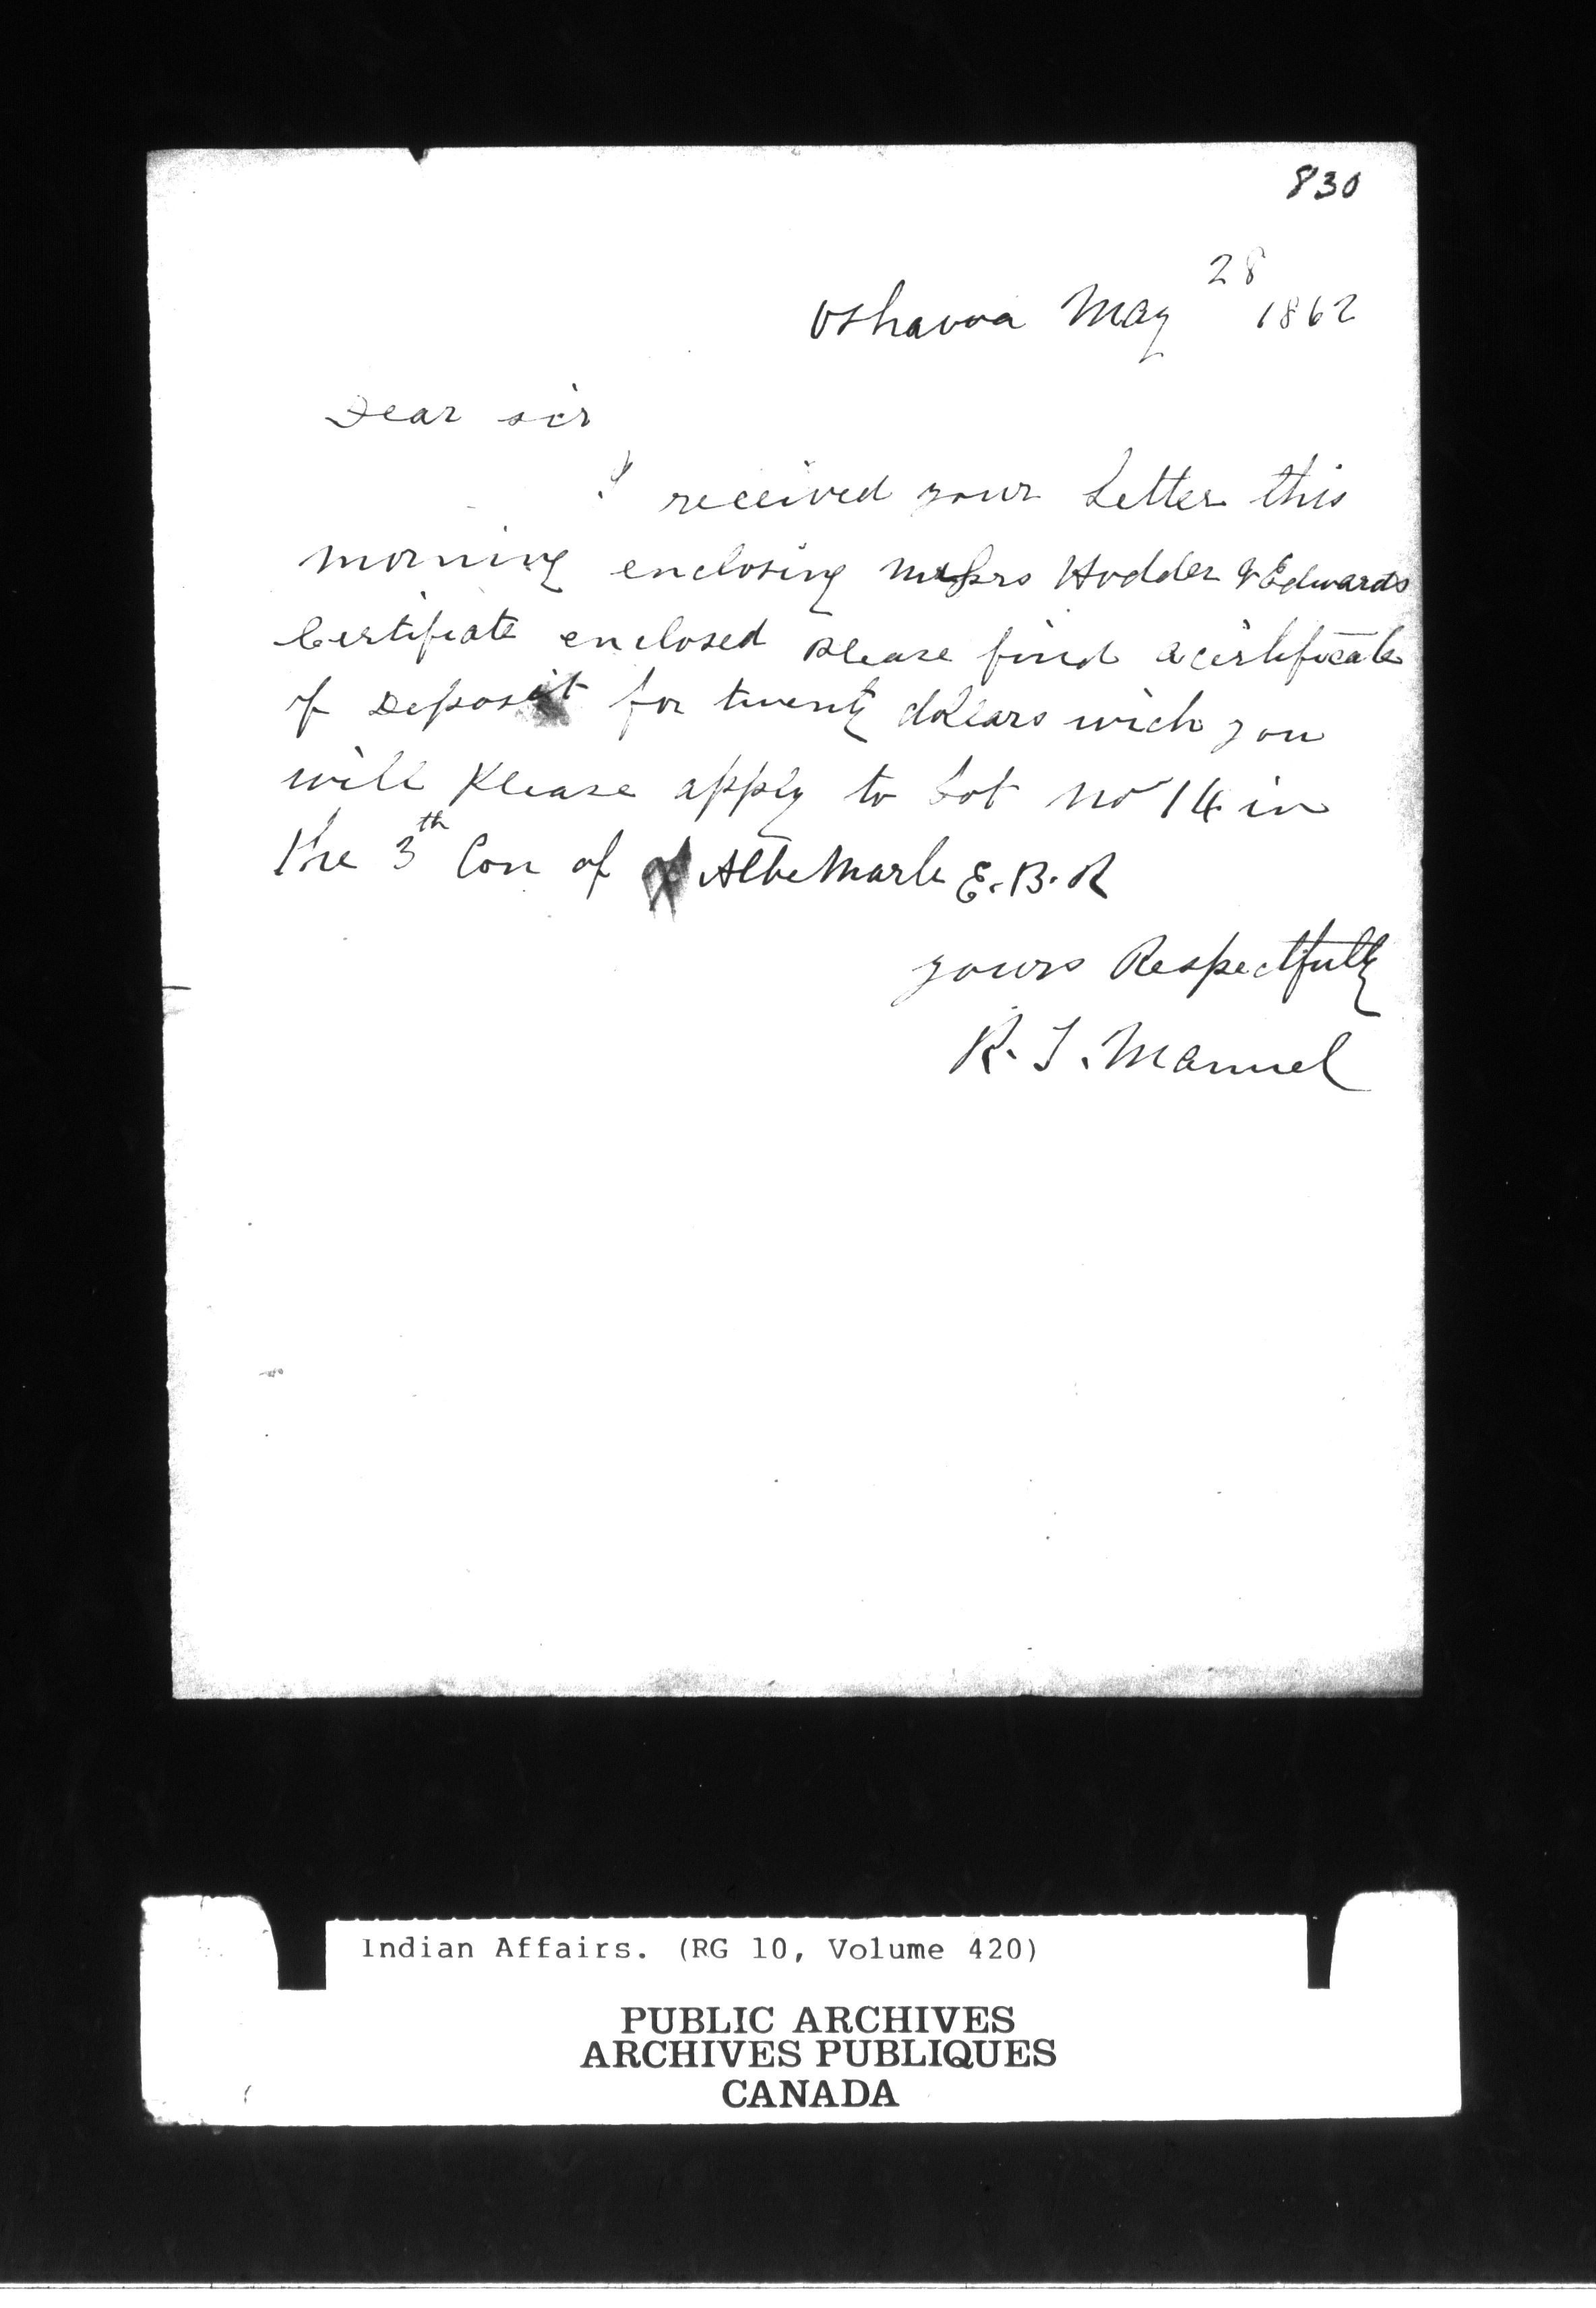 830
Oshawa May 28 1862
Dear sir
I received your Letter this
morning enclosing messrs Hodder & Edwards
Certifiate enclosed please find a certificate
of Deposit for twenty dollars wich you
will Please apply to Lot no 14 in
the 3th Con of Albemarle E.B.R
yours Respectfully
R. J. Manuel
Indian Affairs. (RG 10, Volume 420)
PUBLIC ARCHIVES
ARCHIVES PUBLIQUES
CANADA